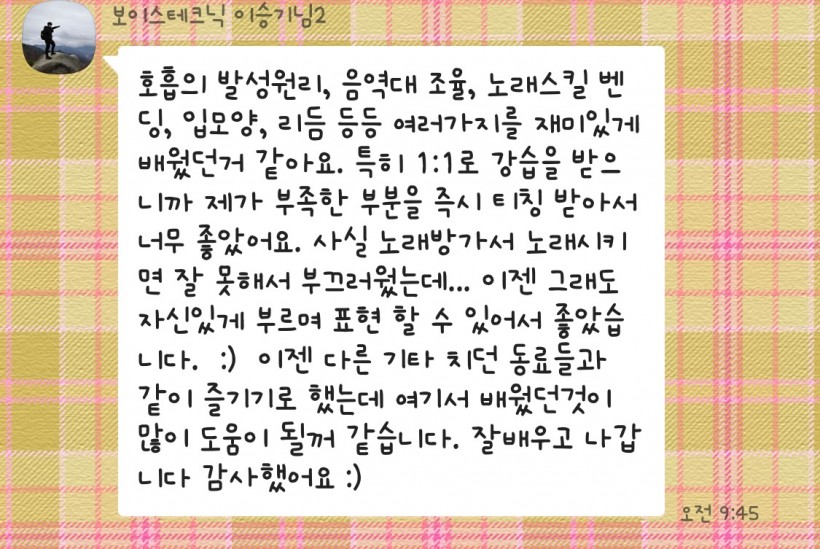 보이스테크닉 이승기님2
호흡의 발성원리, 음역대 조율, 노래스킬 벤
딩, 입모양, 리듬 등등 여러가지를 재미있게
배웠던거 같아요. 특히 1:1로 강습을 받으
니까 제가 부족한 부분을 즉시 티칭 받아서
너무 좋았어요. 사실 노래방가서 노래시키
면 잘 못해서 부끄러웠는데... 이젠 그래도
자신있게 부르며 표현 할 수 있어서 좋았습
니다.  :)  이젠 다른 기타 치던 동료들과
같이 즐기기로 했는데 여기서 배웠던것이
많이 도움이 될꺼 같습니다. 잘배우고 나갑
니다 감사했어요 :)
오전 9:45